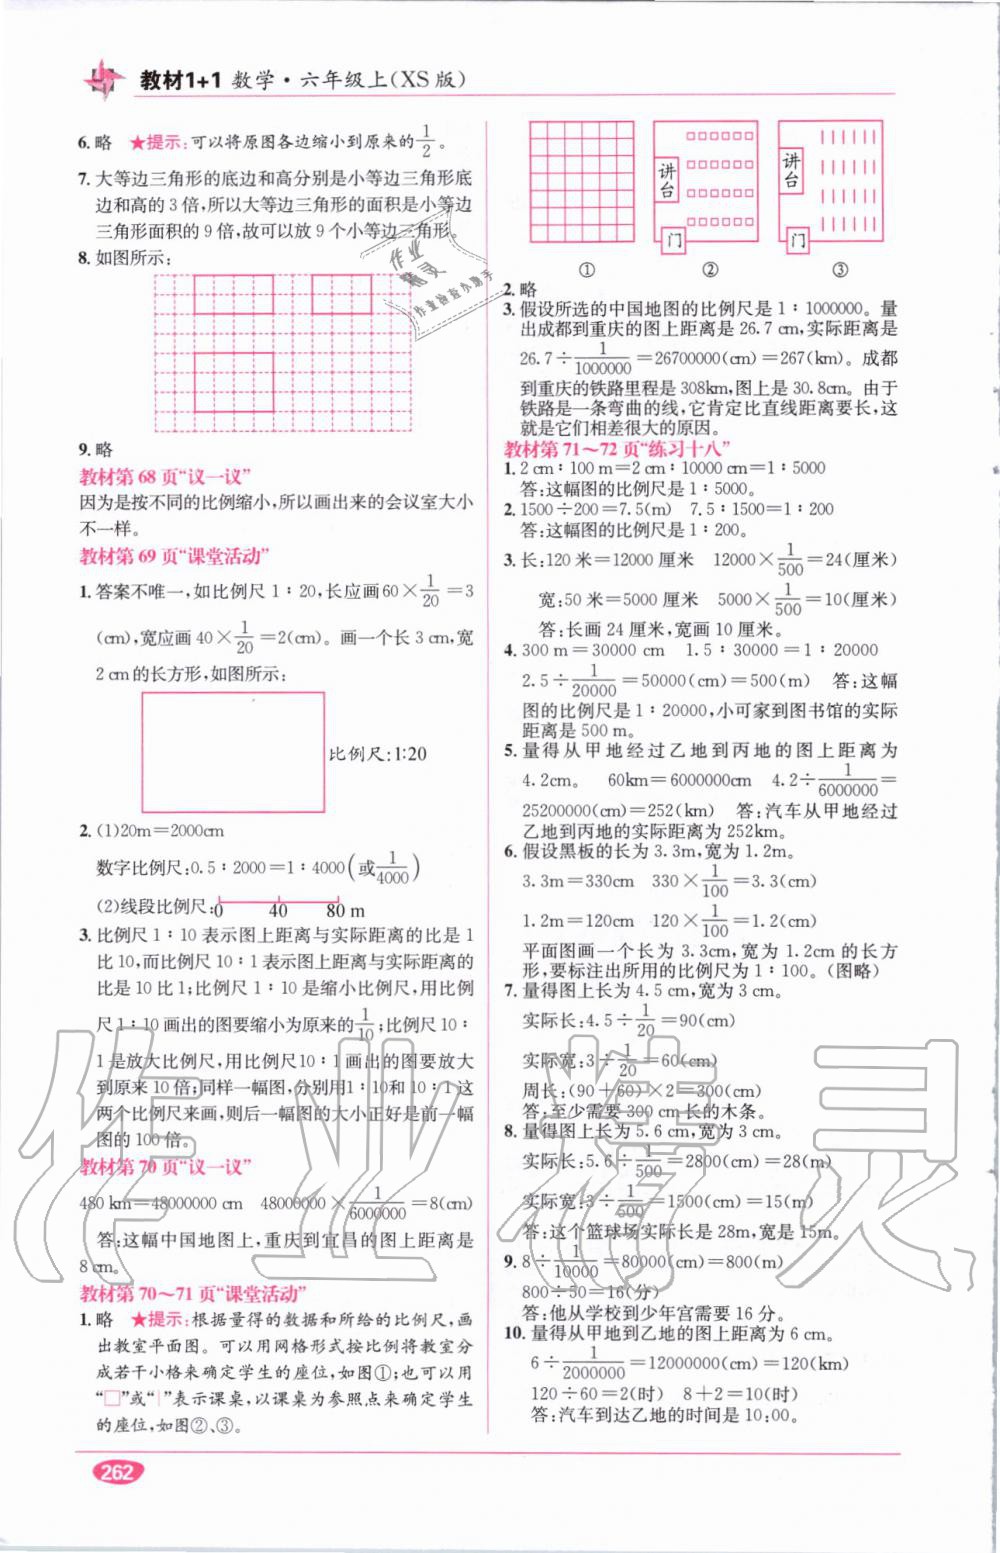 教材1+1 数学·六年级上(XS版)
6. 略 ★提示:可以将原图各边缩小到原来的1/2。
7. 大等边三角形的底边和高分别是小等边三角形底
边和高的3倍,所以大等边三角形的面积是小等边
三角形面积的9倍,故可以放9个小等边三角形。
8. 如图所示:
9. 略
教材第68页“议一议”
因为是按不同的比例缩小,所以画出来的会议室大小
不一样。
教材第69页“课堂活动”
1. 答案不唯一,如比例尺1∶20,长应画60×1/20=3
(cm),宽应画40×1/20=2(cm)。画一个长3 cm,宽
2 cm的长方形,如图所示:
比例尺:1:20
2. (1)20m=2000cm
数字比例尺:0.5∶2000=1∶4000(或1/4000)
(2)线段比例尺:0 40 80 m
3. 比例尺1∶10表示图上距离与实际距离的比是1
比10,而比例尺10∶1表示图上距离与实际距离的
比是10比1;比例尺1∶10是缩小比例尺,用比例
尺1∶10画出的图要缩小为原来的1/10;比例尺10∶
1是放大比例尺,用比例尺10∶1画出的图要放大
到原来10倍;同样一幅图,分别用1∶10和10∶1这
两个比例尺来画,则后一幅图的大小正好是前一幅
图的100倍。
教材第70页“议一议”
480 km=48000000 cm 48000000×1/6000000=8(cm)
答:这幅中国地图上,重庆到宜昌的图上距离是
8 cm。
教材第70～71页“课堂活动”
1. 略 ★提示:根据量得的数据和所给的比例尺,画
出教室平面图。可以用网格形式按比例将教室分
成若干小格来确定学生的座位,如图①;也可以用
“□”或“|”表示课桌,以课桌为参照点来确定学生
的座位,如图②、③。
讲台
门
讲台
门
① ② ③
2. 略
3. 假设所选的中国地图的比例尺是1∶1000000。量
出成都到重庆的图上距离是26.7 cm,实际距离是
26.7÷1/1000000=26700000(cm)=267(km)。成都
到重庆的铁路里程是308km,图上是30.8cm。由于
铁路是一条弯曲的线,它肯定比直线距离要长,这
就是它们相差很大的原因。
教材第71～72页“练习十八”
1. 2 cm∶100 m=2 cm∶10000 cm=1∶5000
答:这幅图的比例尺是1∶5000。
2. 1500÷200=7.5(m) 7.5∶1500=1∶200
答:这幅图的比例尺是1∶200。
3. 长:120米=12000厘米 12000×1/500=24(厘米)
宽:50米=5000厘米 5000×1/500=10(厘米)
答:长画24厘米,宽画10厘米。
4. 300 m=30000 cm 1.5∶30000=1∶20000
2.5÷1/20000=50000(cm)=500(m) 答:这幅
图的比例尺是1∶20000,小可家到图书馆的实际
距离是500 m。
5. 量得从甲地经过乙地到丙地的图上距离为
4.2cm。 60km=6000000cm 4.2÷1/6000000=
25200000(cm)=252(km) 答:汽车从甲地经过
乙地到丙地的实际距离为252km。
6. 假设黑板的长为3.3m,宽为1.2m。
3.3m=330cm 330×1/100=3.3(cm)
1.2m=120cm 120×1/100=1.2(cm)
平面图画一个长为3.3cm,宽为1.2cm的长方
形,要标注出所用的比例尺为1∶100。(图略)
7. 量得图上长为4.5 cm,宽为3 cm。
实际长:4.5÷1/20=90(cm)
实际宽:3÷1/20=60(cm)
周长:(90+60)×2=300(cm)
答:至少需要300 cm长的木条。
8. 量得图上长为5.6 cm,宽为3 cm。
实际长:5.6÷1/500=2800(cm)=28(m)
实际宽:3÷1/500=1500(cm)=15(m)
答:这个篮球场实际长是28m,宽是15m。
9. 8÷1/10000=80000(cm)=800(m)
800÷50=16(分)
答:他从学校到少年宫需要16分。
10. 量得从甲地到乙地的图上距离为6 cm。
6÷1/2000000=12000000(cm)=120(km)
120÷60=2(时) 8+2=10(时)
答:汽车到达乙地的时间是10:00。
262
作业精灵